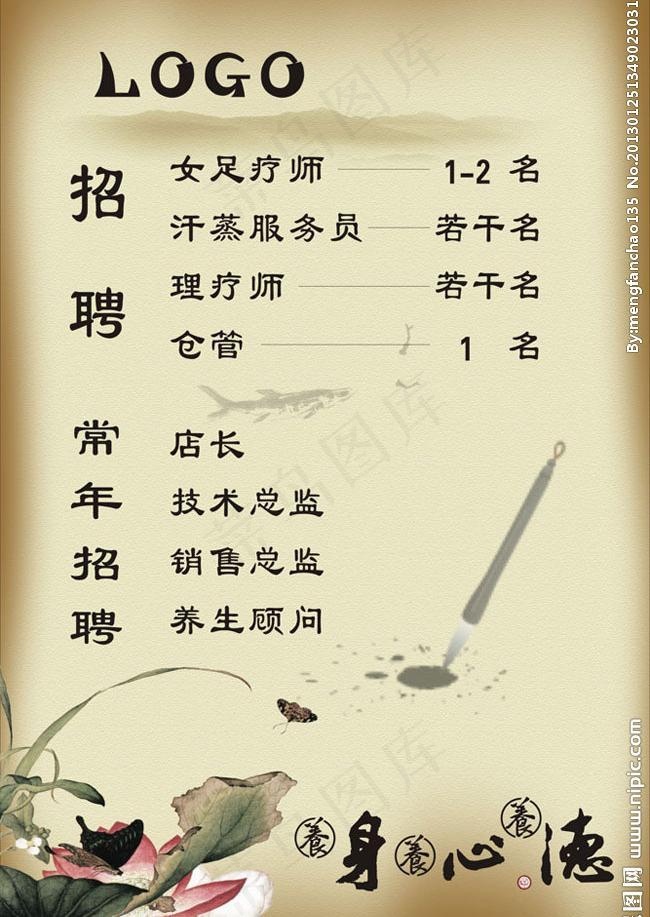 LOGO
招聘
女足疗师 1-2 名
汗蒸服务员 若干名
理疗师 若干名
仓管 1 名
常年招聘
店长
技术总监
销售总监
养生顾问
養身養心養德
By:mengfanchao135 No.20130125134902303​1
www.nipic.com
菜鸟图库